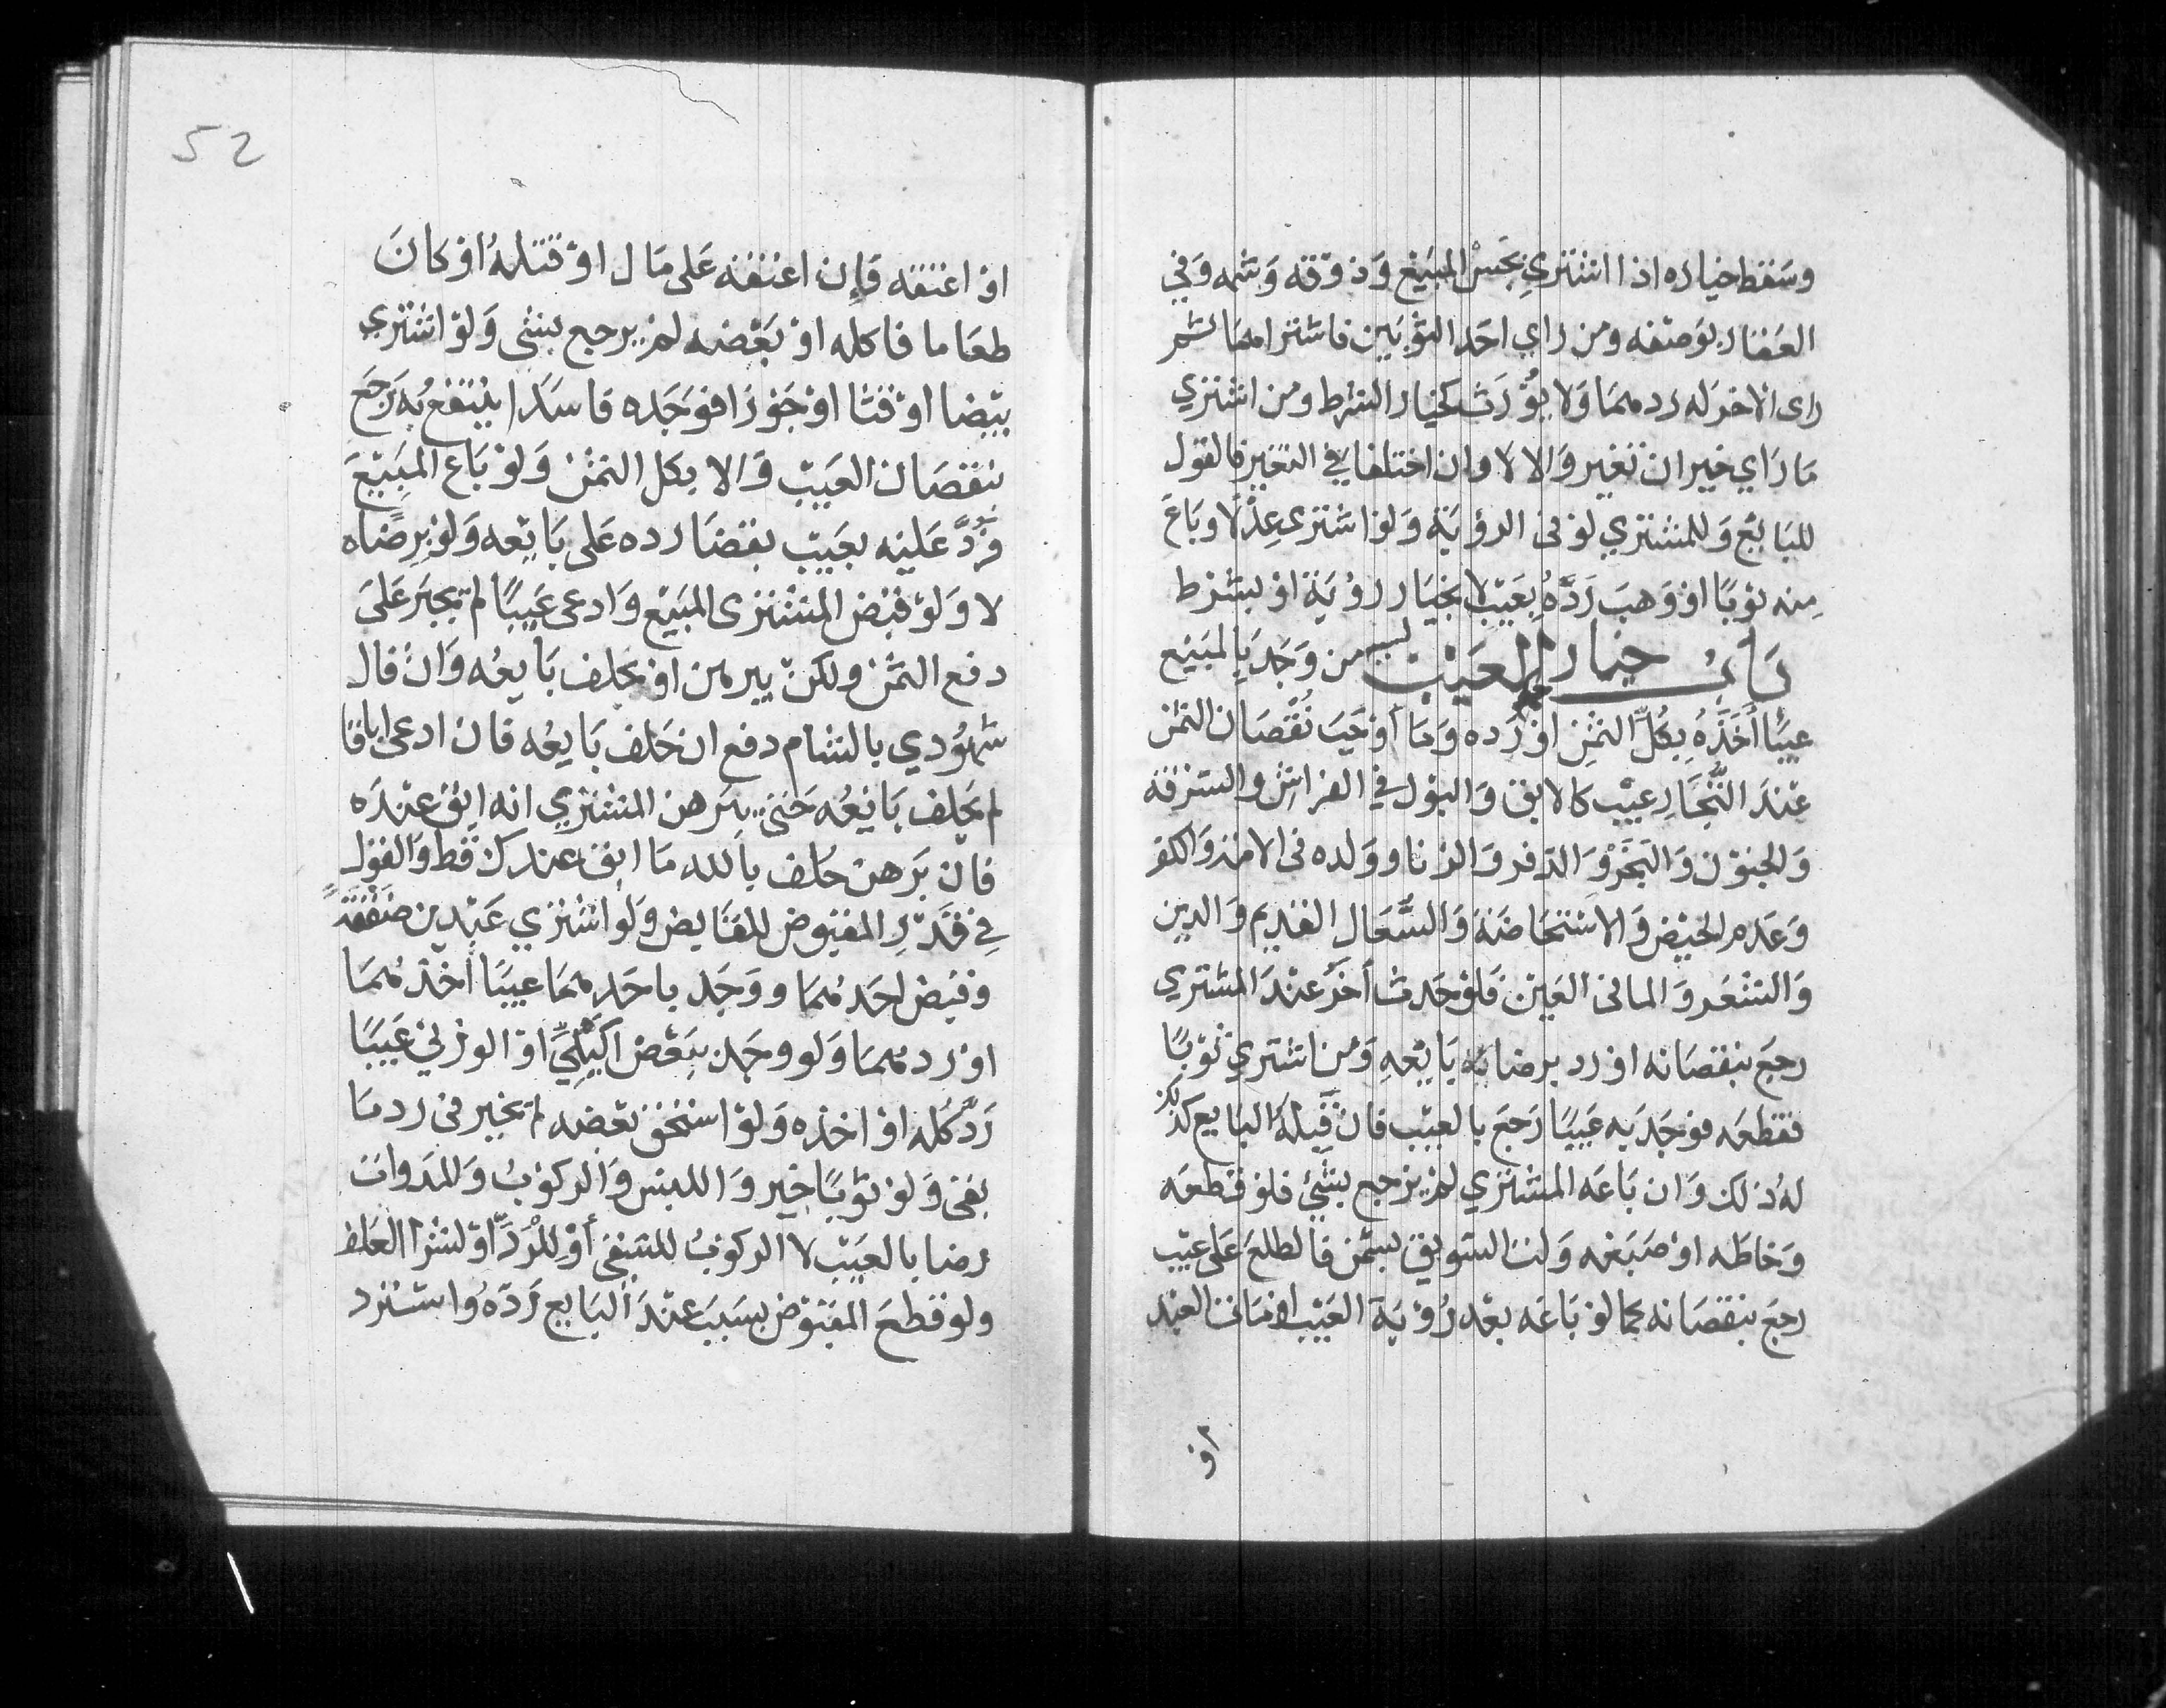 وسقط خياره اذا اشتري بجس المبيع وذوقه وشمه وفي
العقار بوصفه ومن راي احد الثوبين فاشتراهما ثم
راى الاخر له ردهما ولا يورث كخيار الشرط ومن اشتري
ما راي خير ان تغير والا لا وان اختلفا في التغير فالقول
للبايع وللمشتري لو في الرؤية ولو اشترى عدلا وباع
منه ثوبا او وهب رده بعيب لا بخيار رؤية او بشرط
باب خيار العيب من وجد بالمبيع
عيبا أخذه بكل الثمن او رده وما أوجب نقصان الثمن
عند التجار عيب كالابق والبول في الفراش والسرقة
والجنون والبخر والدفر والزنا وولده في الامة والكفر
وعدم الحيض والاستحاضة والسعال القديم والدين
والشعر والما في العين فلو حدث أخر عند المشتري
رجع بنقصانه او رد برضا بايعه ومن اشتري ثوبا
فقطعه فوجد به عيبا رجع بالعيب فان قبله البايع كذلك
له ذلك وان باعه المشتري لم يرجع بشئ فلو قطعه
وخاطه او صبغه ولت السويق بسمن فاطلع على عيب
رجع بنقصانه كما لو باعه بعد رؤية العيب او مات العبد
او
52
او اعتقه فإن اعتقه على مال او قتله او كان
طعاما فاكله او بعضه لم يرجع بشي ولو اشتري
بيضا او قثا او جوزا فوجده فاسدا ينتفع به رجع
بنقصان العيب والا بكل الثمن ولو باع المبيع
فرد عليه بعيب بقضا رده على بايعه ولو برضاه
لا ولو قبض المشترى المبيع وادعى عيبا لم يجبر على
دفع الثمن ولكن يبرهن او يحلف بايعه وان قال
شهودي بالشام دفع ان حلف بايعه فان ادعى اباقا
لم يحلف بايعه حتى يبرهن المشتري انه ابق عنده
فان برهن حلف بالله ما ابق عندك قط والقول
في قدر المقبوض للقابض ولو اشتري عبدين صفقة
وقبض احدهما ووجد باحدهما عيبا أخذهما
او ردهما ولو وجد ببعض الكيلي او الوزني عيبا
رد كله او اخذه ولو استحق بعضه لم يخير في رد ما
بقى ولو ثوبا خير واللبس والركوب والمداواة
رضا بالعيب لا الركوب للسقي أو للرد او لشرا العلف
ولو قطع المقبوض بسبب عند البايع رده واسترد